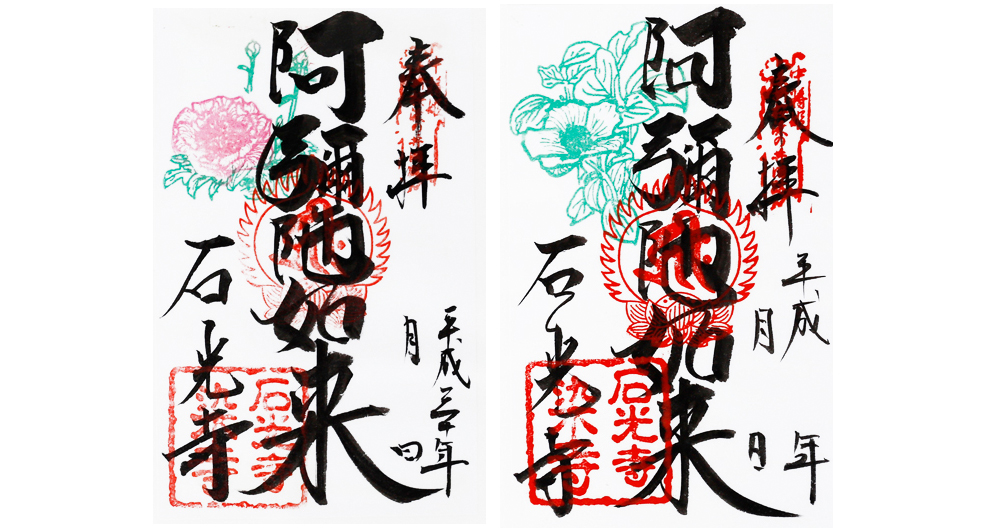 奉拝
平成三十年
月 日
阿彌陀如来
石光寺
石光寺
染寺
奉拝
平成 年
月 日
阿彌陀如来
石光寺
石光寺
染寺